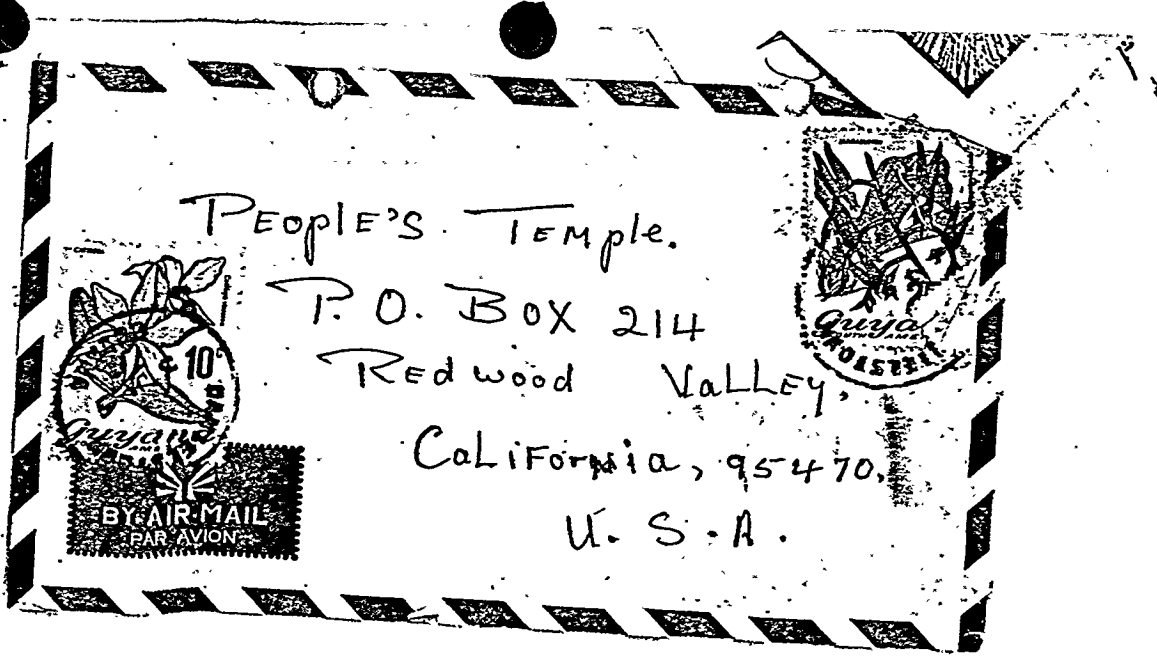 PEOplE'S TEMple.
P. O. BOX 214
REdwood VaLLEy,
CaLiFornia, 95470.
U. S. A.
10c
Guyana
BY AIR MAIL
PAR AVION
Guya